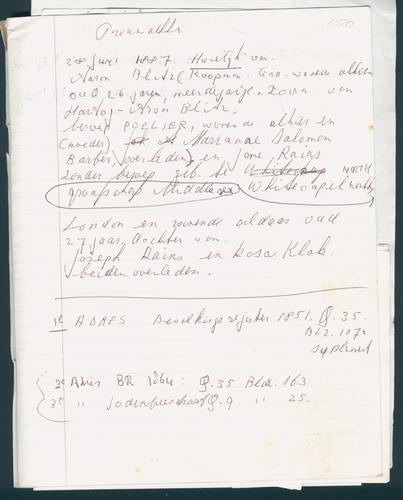 150
28 Juni 1887. Huwelijk van
Aaron Blitz (Koopman. Gro. wonende alhier
oud 26 jaren, meerderjarige Zoon van
Hartog-Aron Blitz,
beroep POELIER, wonende alhier en
(moeder) Marianne Salomon
Barber, overleden, en Jane Rains
zonder beroep geb. te Whitechap NORTH
graafschap Middlesex Whitecapel north
London en wonende aldaar oud
27 jaar, dochter van.
Joseph Rains en Rosa Klok.
beiden overleden.
1e ADRES Bevolkings register 1851. Q. 35.
BLZ. 107a
suplement
2e Adres BR 1864: Q. 35. Blad. 163
3e " Jodenbreestraat Q. 9 " 25.